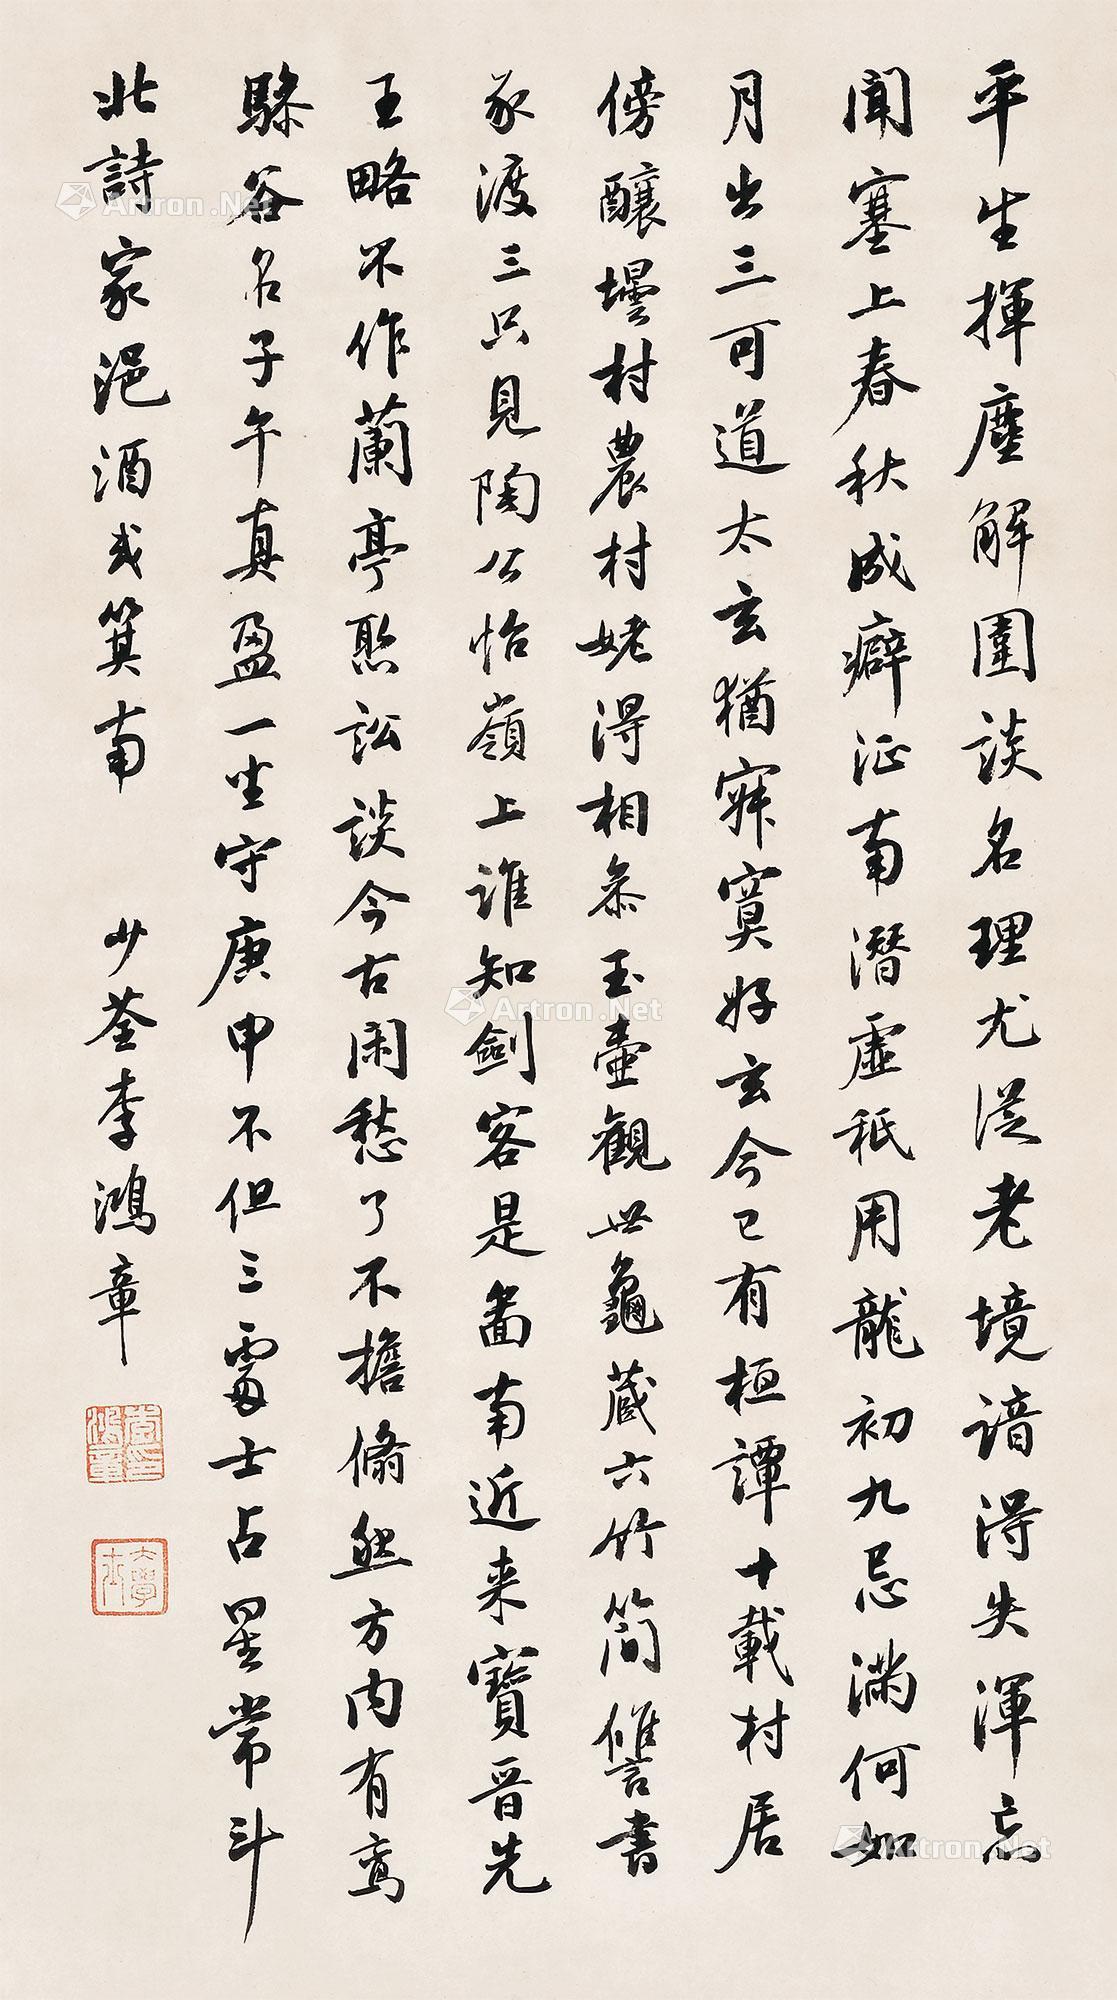 平生揮麈解圍談名理尤從老境諳得失渾忘
聞塞上春秋成癖證南潛虛祇用龍初九忌滿何如
月出三可道太玄猶寂寞好玄今已有桓譚十載村居
傍釀壜村農村姥得相參玉壺觀世龜藏六竹簡讎書
豕渡三只見陶公怡嶺上誰知劍客是圖南近來寶晉先
王略不作蘭亭惄訟談今古閑愁了不擔翛然方內有鸞
驂谷名子午真盈一坐守庚申不但三處士占星常斗
北詩家浥酒或箕南
少荃李鴻章
李鴻章印
大學士
Artron.Net
Artron.Net
Artron.Net